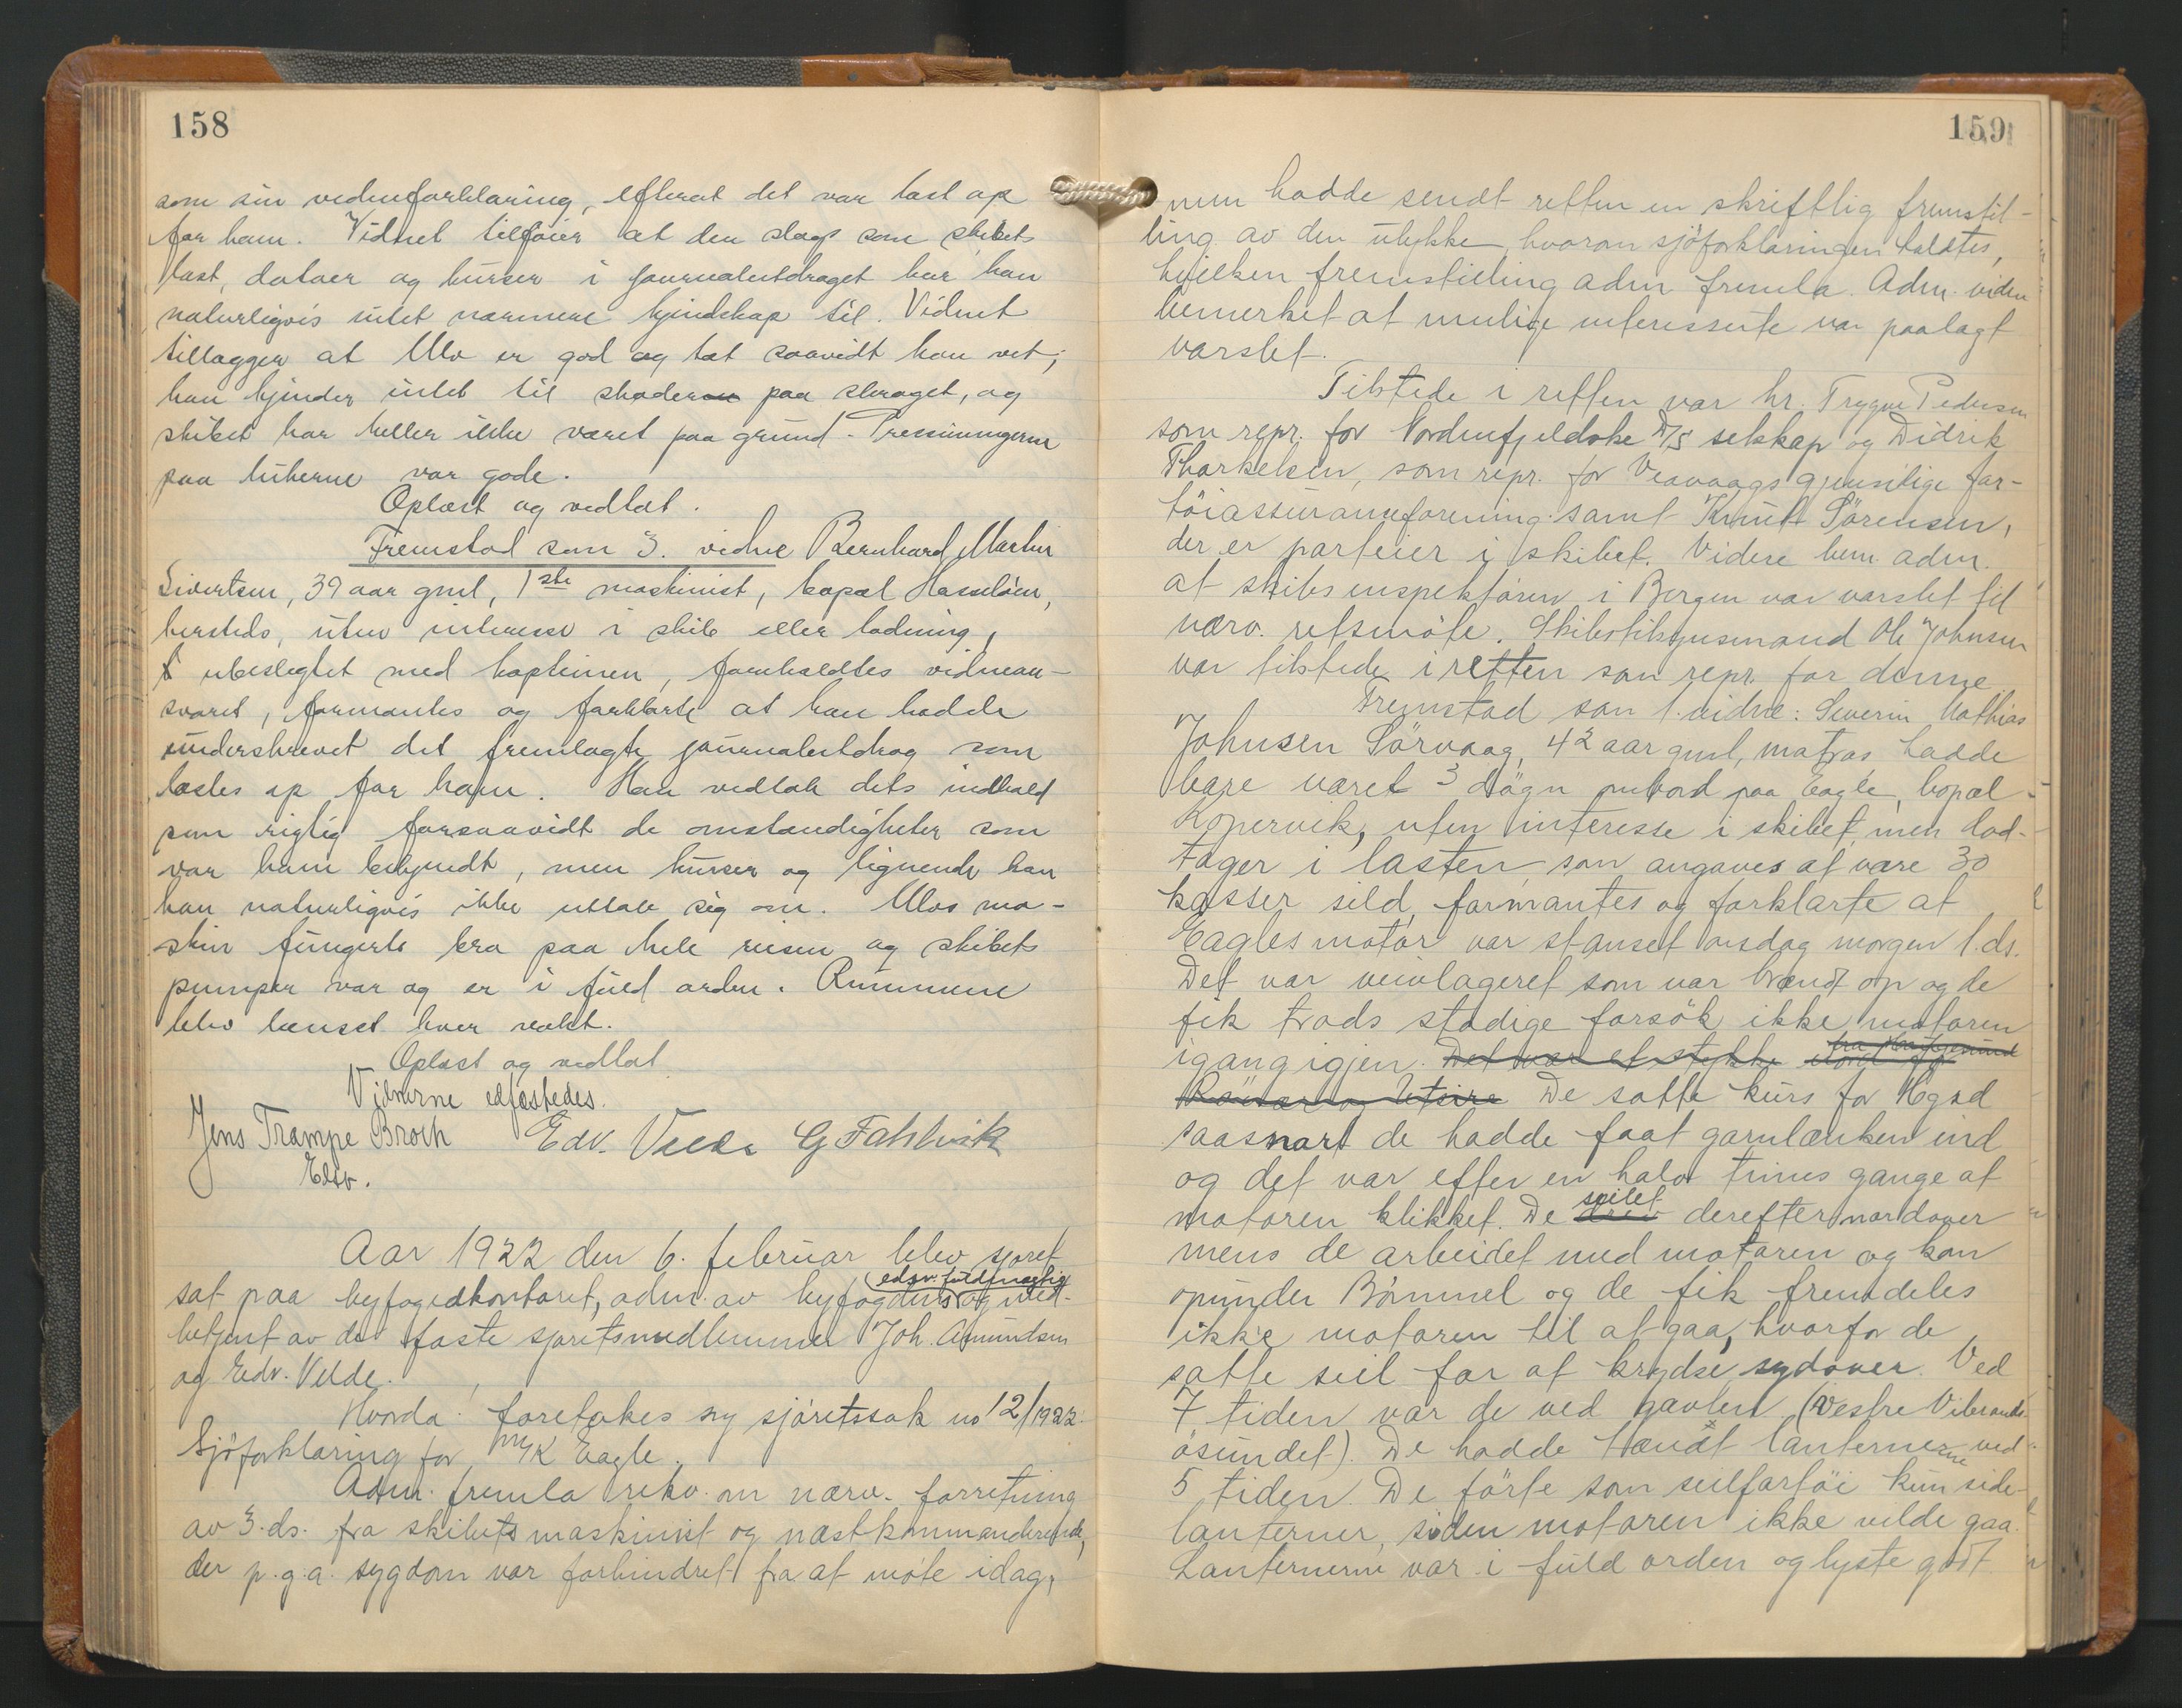 158
som sin vidneforklaring, efterat det var læst op
for ham. Vidnet tilføier at den slags som skibets
last, datoer og kurser i journalutdraget har han
naturligvis intet nærmere kjendskap til. Vidnet
tillægger at Ulv er god og tæt saavidt han vet;
han kjender intet til skader paa skroget, og
skibet har heller ikke været paa grund. Presenningerne
paa lukerne var gode.
Oplæst og vedtat.
Fremstod som 3. vidne Bernhard Martin
Sivertsen, 39 aar gml, 1ste maskinist, bopæl Hasseløen,
hersteds, uten interesse i skib eller ladning,
ubeslegtet med kapteinen, foreholdtes vidnean-
svaret, formantes og forklarte at han hadde
underskrevet det fremlagte journalutdrag som
læstes op for ham. Han vedtok dets indhold
som rigtig forsaavidt de omstændigheter som
var ham bekjendt, men kurser og lignende kan
han naturligvis ikke uttale sig om. Ulvs ma-
skin fungerte bra paa hele reisen og skibets
pumper var og er i fuld orden. Rummene
blev lænset hver vakt.
Oplæst og vedtat
Vidnerne edfæstedes.
Jens Trampe Broch Edv. Velde G Fahlvik
Edsv.
Aar 1922 den 6. februar blev sjøret
edsv. fuldmægtig
sat paa byfogedkontoret, adm. av byfogdens og med-
betjent av de faste sjøretsmedlemmer Joh. Amundsen
og Edv. Velde.
Hvorda: foretokes ny sjøretssak no 12/1922:
Sjöforklaring for M/K Eagle.
Adm. fremla rekv. om nærv. forretning
av 3. ds. fra skibets maskinist og næstkommanderende,
der p.g.a. sygdom var forhindret fra at møte idag,
159
men hadde sendt retten en skriftlig fremstil-
ling av den ulykke, hvorom sjöforklaringen holdtes,
hvilken fremstilling adm fremla. Adm. viden
bemerket at mulige interesserte var paalagt
varslet.
Tilstede i retten var hr. Trygve Pedersen
som repr. for Nordenfjeldske D/S selskap og Didrik
Thorkelsen, som repr. for Veavaags gjensidige far-
töiassuranceforening samt Knut Sörensen,
der er parteier i skibet. Videre bem. adm.
at skibsinspektören i Bergen var varslet til
nærv. retsmöte. Skibstilsynsmand Ole Johnsen
var tilstede i retten som repr. for denne
Fremstod som 1. vidne: Severin Mathias
Johnsen Sörvaag, 42 aar gml, matros hadde
bare været 3 dögn ombord paa Eagle, bopæl
Kopervik, uten interesse i skibet, men lod-
tager i lasten, som angaves at være 30
kasser sild, formantes og forklarte at
Eagles motor var stanset onsdag morgen 1. ds.
Det var veivlageret som var brændt op og de
fik trods stadige forsök ikke motoren
igang igjen. Det var et stykke
fra Haugesund
De satte kurs for Hgsd
saasnart de hadde faat garnlænken ind
og det var efter en halv times gange at
seilet
motoren klikket. De drev derefter nordover
mens de arbeidet med motoren og kom
opunder Bömmel og de fik fremdeles
ikke motoren til at gaa, hvorfor de
satte seil for at krydse sydover. Ved
7 tiden var de ved gavlen (Vestre Vibrands-
ösundet). De hadde tændt lanternerne ved
5 tiden. De förte som seilfartöi kun side-
lanterner, siden motoren ikke vilde gaa.
Lanternerne var i fuld orden og lyste godt